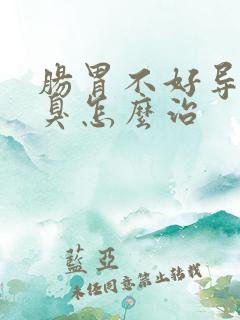 腸胃不好导
臭怎麼治
藍亞
未经同意禁止转载